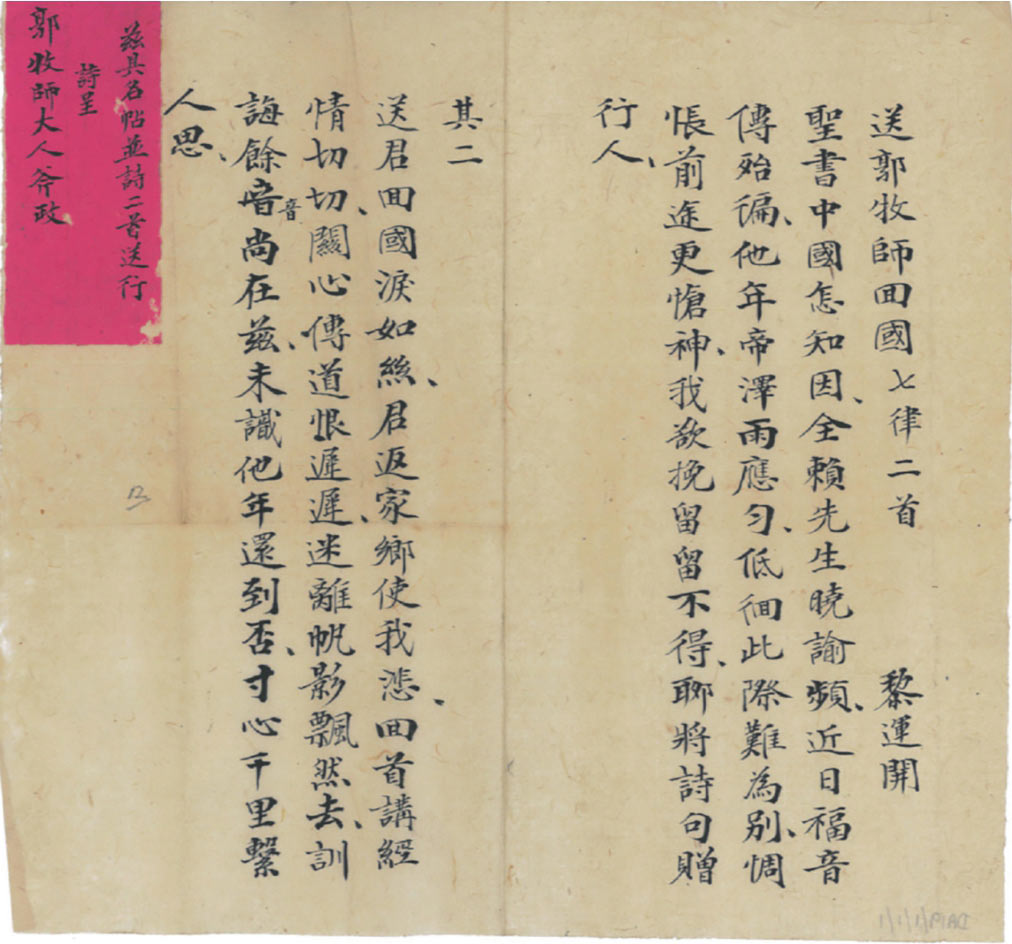 送郭牧師回國七律二首 黎運開
聖書中國怎知因、全賴先生曉諭頻、近日福音
傳殆徧、他年帝澤雨應勻、低徊此際難為別、惆
悵前途更愴神、我欲挽留留不得、聊將詩句贈
行人、
其二
送君回國淚如絲、君返家鄉使我悲、回首講經
情切切、關心傳道恨遲遲、迷離帆影飄然去、訓
誨餘音音尚在茲、未識他年還到否、寸心千里繫
人思、
茲具名帖並詩二首送行
詩呈
郭牧師大人斧政